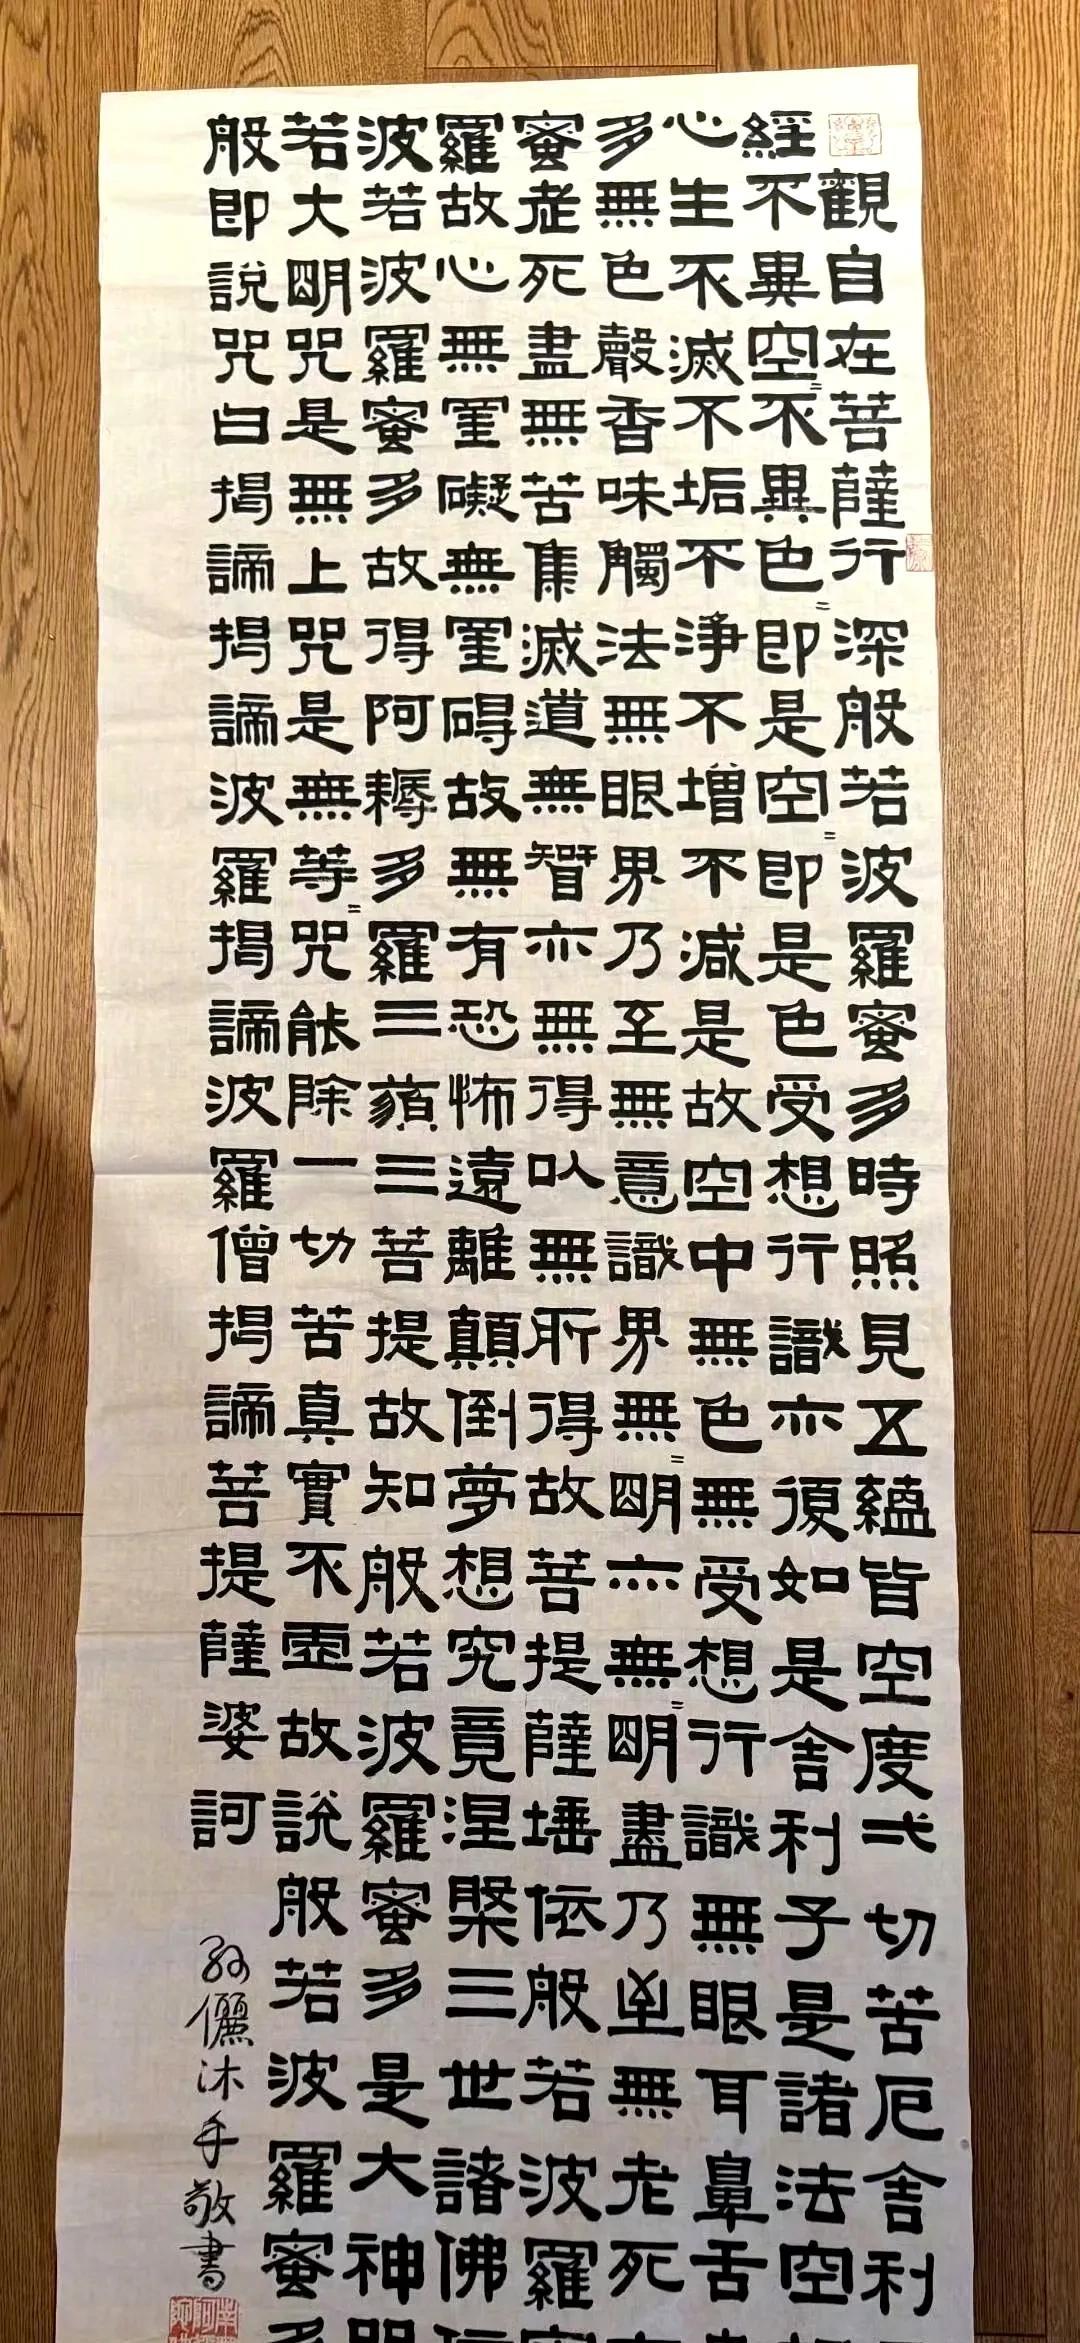 般若波羅蜜多心經
觀自在菩薩行深般若波羅蜜多時照見五蘊皆空度弌切苦厄舍利
不異空=不異色=即是空=即是色受想行識亦復如是舍利子是諸法空
生不滅不垢不淨不增不減是故空中無色無受想行識無眼耳鼻舌
無色聲香味觸法無眼界乃至無意識界無=明亦無=明盡乃至無老死
老死盡無苦集滅道無智亦無得以無所得故菩提薩埵依般若波羅蜜
故心無罣礙無罣碍故無有恐怖遠離顛倒夢想究竟涅槃三世諸佛
若波羅蜜多故得阿耨多羅三藐三菩提故知般若波羅蜜多是大神咒
大明咒是無上咒是無等=咒能除一切苦真實不虛故說般若波羅蜜多
即說咒曰揭諦揭諦波羅揭諦波羅僧揭諦菩提薩婆訶
孙儷沐手敬書